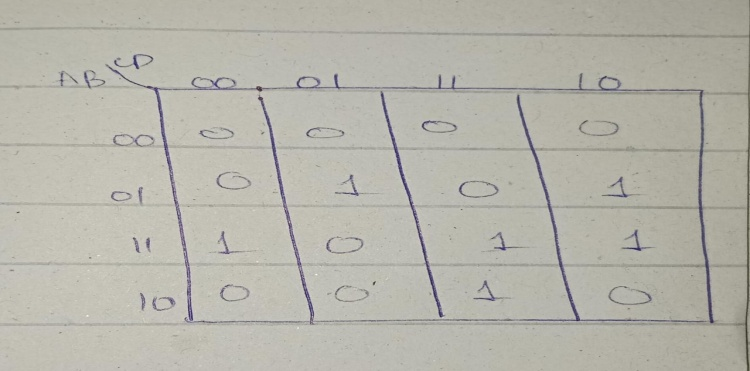 AB CD 00 01 11 10
00 0 0 0 0
01 0 1 0 1
11 1 0 1 1
10 0 0 1 0